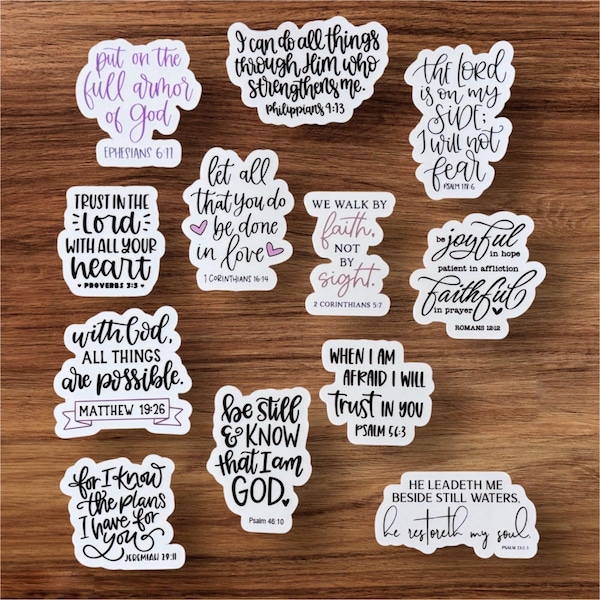 put on the
full armor
of God
EPHESIANS 6:11
I can do all things
through Him who
strengthens me.
Philippians 4:13
the LORD
is on my
SIDE;
I will not
fear
PSALM 118:6
TRUST IN THE
Lord
WITH ALL YOUR
heart
PROVERBS 3:5
let all
that you do
be done
in love
1 CORINTHIANS 16:14
WE WALK BY
faith,
NOT
BY
sight.
2 CORINTHIANS 5:7
be joyful
in hope
patient in affliction
faithful
in prayer
ROMANS 12:12
with God,
ALL THINGS
are possible.
MATTHEW 19:26
be still
& KNOW
that I am
GOD.
Psalm 46:10
WHEN I AM
AFRAID I WILL
Trust IN YOU
PSALM 56:3
for I know
the plans
I have for
you
JEREMIAH 29:11
HE LEADETH ME
BESIDE STILL WATERS.
he restoreth my soul.
PSALM 23:2-3